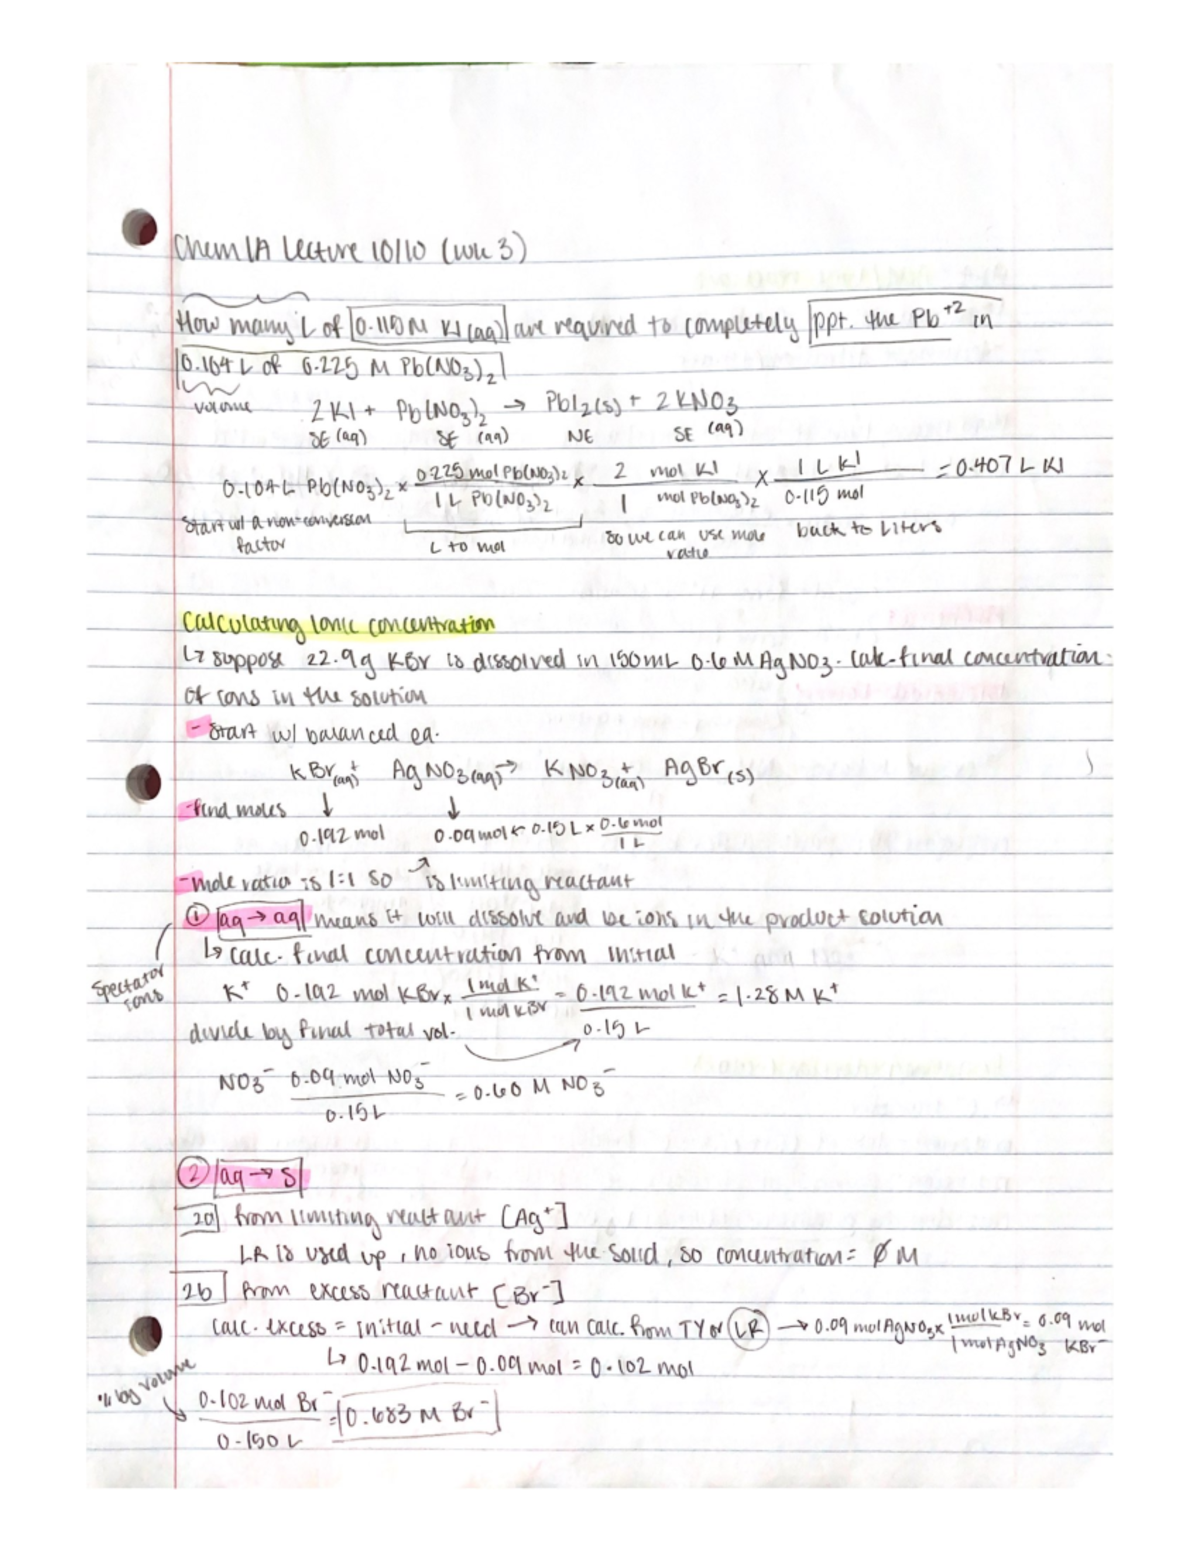 Chem 1A Lecture 10/10 (wk 3)
How many L of 0.115 M KI (aq) are required to completely ppt. the Pb+2 in
0.104 L of 0.225 M Pb(NO3)2
volume 2KI + Pb(NO3)2 → PbI2(s) + 2KNO3
SE (aq) SE (aq) NE SE (aq)
0.104 L Pb(NO3)2 × 0.225 mol Pb(NO3)2 / 1 L Pb(NO3)2 × 2 mol KI / 1 mol Pb(NO3)2 × 1 L KI / 0.115 mol = 0.407 L KI
Start w/ a non-conversion factor
L to mol
so we can use mole ratio
back to Liters
Calculating Ionic concentration
↳ suppose 22.9g KBr is dissolved in 150mL 0.6 M AgNO3. Calc. final concentration
of ions in the solution
- Start w/ balanced eq.
KBr(aq) + AgNO3(aq) → KNO3(aq) + AgBr(s)
- find moles ↓ ↓
0.192 mol 0.09 mol ← 0.15 L × 0.6 mol / 1 L
- mole ratio is 1:1 so ↗ is limiting reactant
① aq → aq means it will dissolve and be ions in the product solution
↳ calc. final concentration from initial
Spectator ions
K+ 0.192 mol KBr × 1 mol K+ / 1 mol KBr = 0.192 mol K+ / 0.15 L = 1.28 M K+
divide by final total vol.
NO3- 0.09 mol NO3- / 0.15 L = 0.60 M NO3-
② aq → s
2a from limiting reactant [Ag+]
LR is used up, no ions from the solid, so concentration = Ø M
2b from excess reactant [Br-]
calc. excess = initial - need → can calc. from TY or LR → 0.09 mol AgNO3 × 1 mol KBr / 1 mol AgNO3 = 0.09 mol KBr
↳ 0.192 mol - 0.09 mol = 0.102 mol
by volume
0.102 mol Br- / 0.150 L = 0.683 M Br-